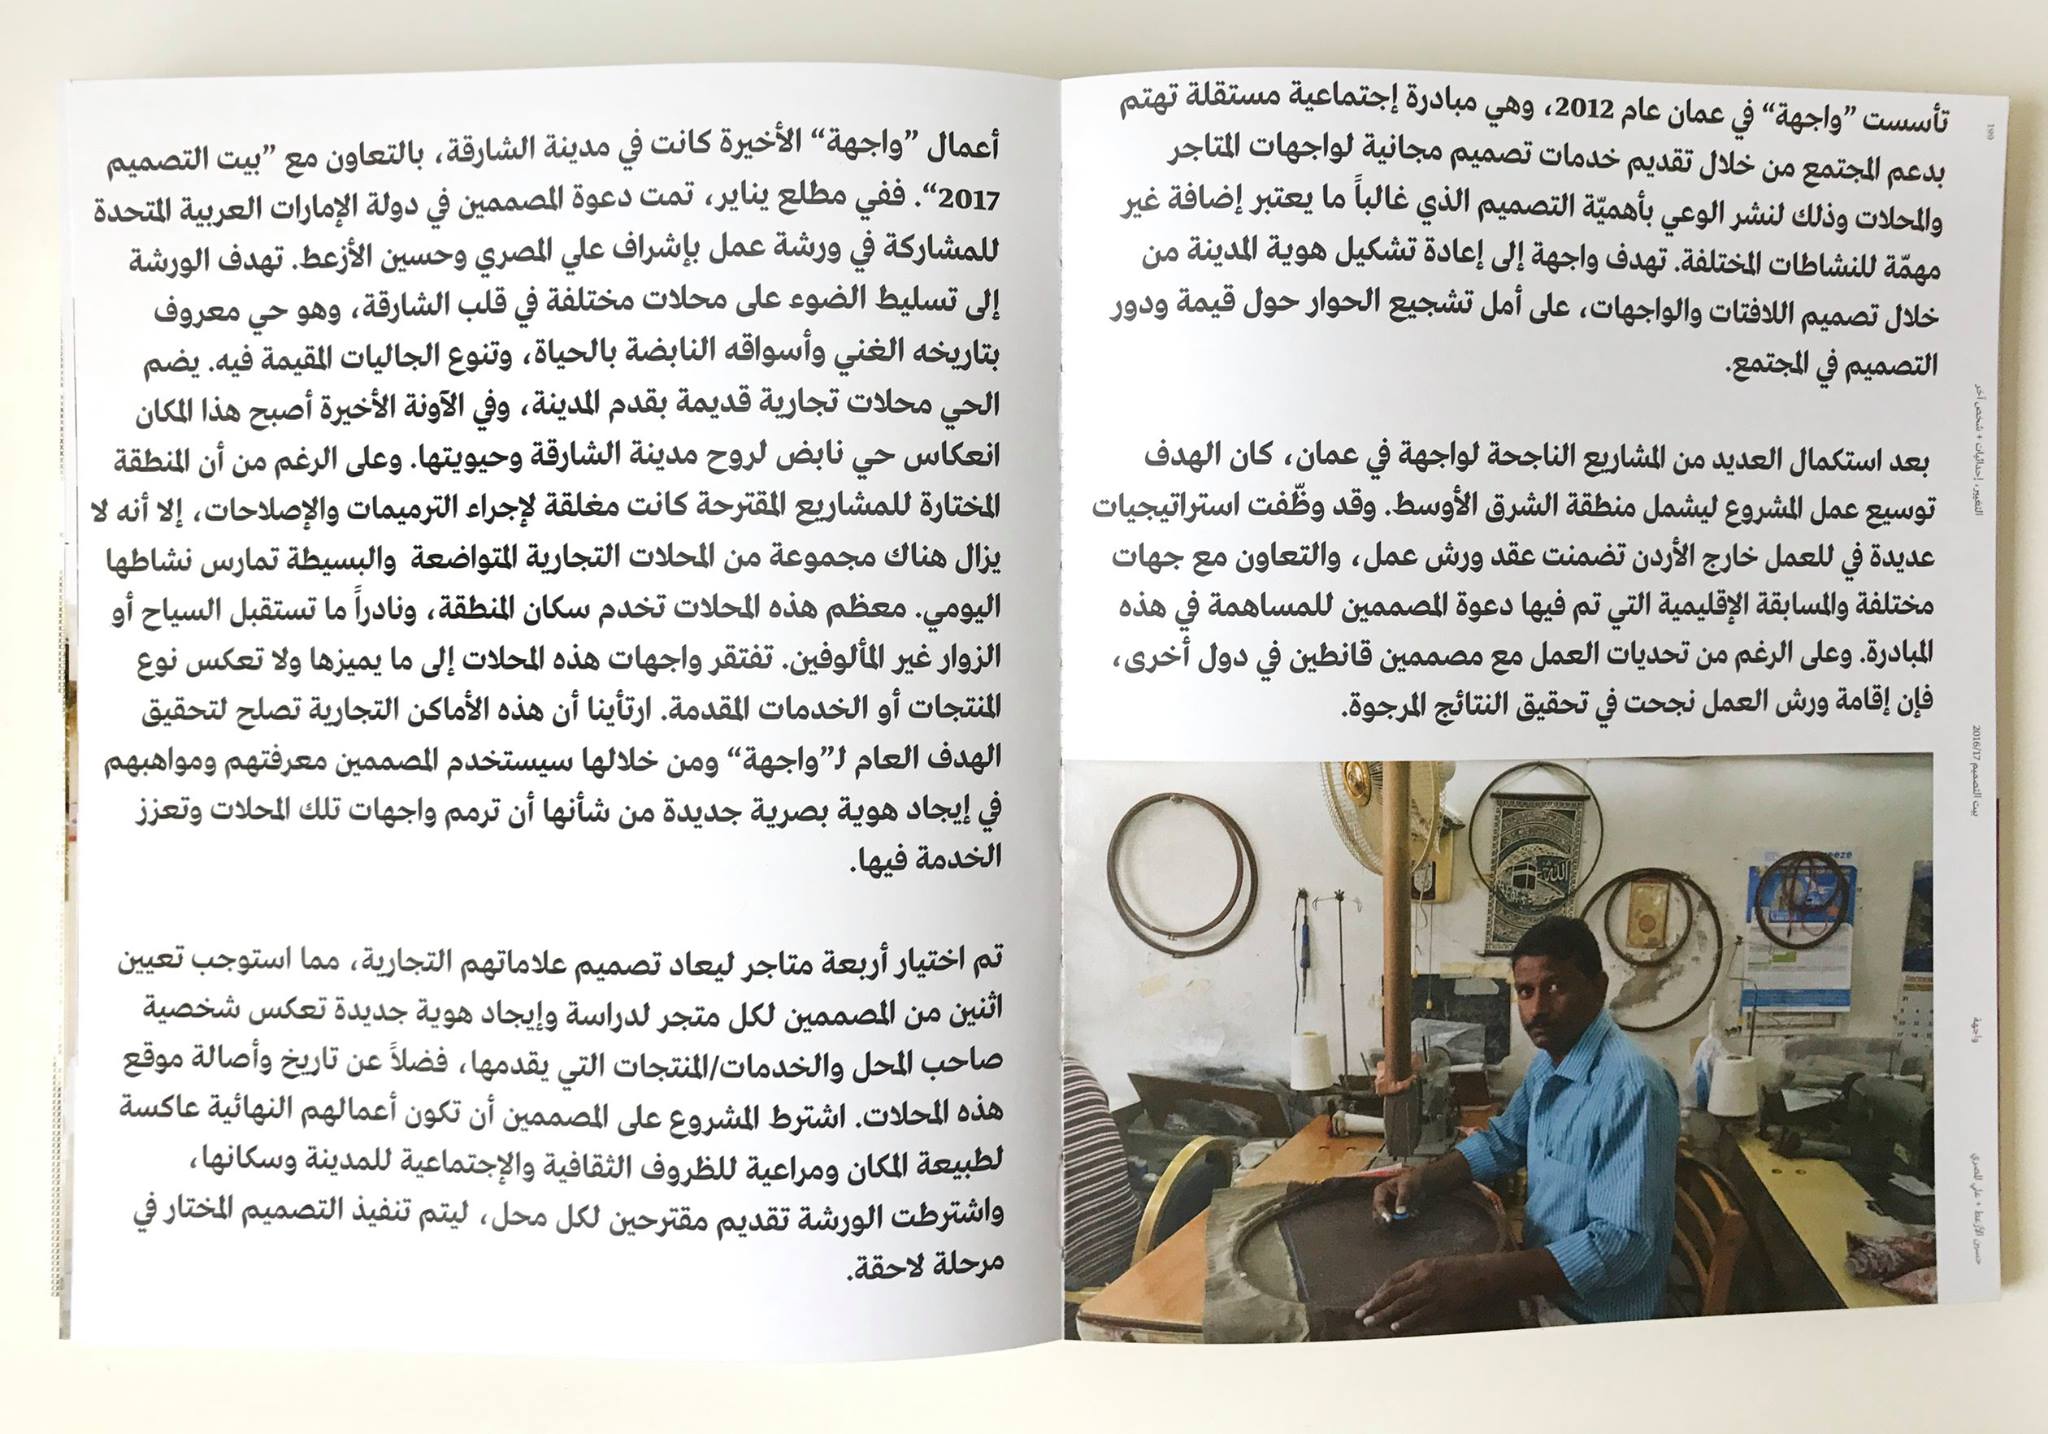 تأسست ”واجهة“ في عمان عام 2012، وهي مبادرة إجتماعية مستقلة تهتم
بدعم المجتمع من خلال تقديم خدمات تصميم مجانية لواجهات المتاجر
والمحلات وذلك لنشر الوعي بأهميّة التصميم الذي غالباً ما يعتبر إضافة غير
مهمّة للنشاطات المختلفة. تهدف واجهة إلى إعادة تشكيل هوية المدينة من
خلال تصميم اللافتات والواجهات، على أمل تشجيع الحوار حول قيمة ودور
التصميم في المجتمع.
بعد استكمال العديد من المشاريع الناجحة لواجهة في عمان، كان الهدف
توسيع عمل المشروع ليشمل منطقة الشرق الأوسط. وقد وظّفت استراتيجيات
عديدة في للعمل خارج الأردن تضمنت عقد ورش عمل، والتعاون مع جهات
مختلفة والمسابقة الإقليمية التي تم فيها دعوة المصممين للمساهمة في هذه
المبادرة. وعلى الرغم من تحديات العمل مع مصممين قانطين في دول أخرى،
فإن إقامة ورش العمل نجحت في تحقيق النتائج المرجوة.
التغيير، إحداثيات + شخص آخر
بيت التصميم 2016/17
واجهة
حسين الأزعط + علي المصري
الله
أعمال ”واجهة“ الأخيرة كانت في مدينة الشارقة، بالتعاون مع ”بيت التصميم
2017“. ففي مطلع يناير، تمت دعوة المصممين في دولة الإمارات العربية المتحدة
للمشاركة في ورشة عمل بإشراف علي المصري وحسين الأزعط. تهدف الورشة
إلى تسليط الضوء على محلات مختلفة في قلب الشارقة، وهو حي معروف
بتاريخه الغني وأسواقه النابضة بالحياة، وتنوع الجاليات المقيمة فيه. يضم
الحي محلات تجارية قديمة بقدم المدينة، وفي الآونة الأخيرة أصبح هذا المكان
انعكاس حي نابض لروح مدينة الشارقة وحيويتها. وعلى الرغم من أن المنطقة
المختارة للمشاريع المقترحة كانت مغلقة لإجراء الترميمات والإصلاحات، إلا أنه لا
يزال هناك مجموعة من المحلات التجارية المتواضعة والبسيطة تمارس نشاطها
اليومي. معظم هذه المحلات تخدم سكان المنطقة، ونادراً ما تستقبل السياح أو
الزوار غير المألوفين. تفتقر واجهات هذه المحلات إلى ما يميزها ولا تعكس نوع
المنتجات أو الخدمات المقدمة. ارتأينا أن هذه الأماكن التجارية تصلح لتحقيق
الهدف العام لـ”واجهة“ ومن خلالها سيستخدم المصممين معرفتهم ومواهبهم
في إيجاد هوية بصرية جديدة من شأنها أن ترمم واجهات تلك المحلات وتعزز
الخدمة فيها.
تم اختيار أربعة متاجر ليعاد تصميم علاماتهم التجارية، مما استوجب تعيين
اثنين من المصممين لكل متجر لدراسة وإيجاد هوية جديدة تعكس شخصية
صاحب المحل والخدمات/المنتجات التي يقدمها، فضلاً عن تاريخ وأصالة موقع
هذه المحلات. اشترط المشروع على المصممين أن تكون أعمالهم النهائية عاكسة
لطبيعة المكان ومراعية للظروف الثقافية والإجتماعية للمدينة وسكانها،
واشترطت الورشة تقديم مقترحين لكل محل، ليتم تنفيذ التصميم المختار في
مرحلة لاحقة.